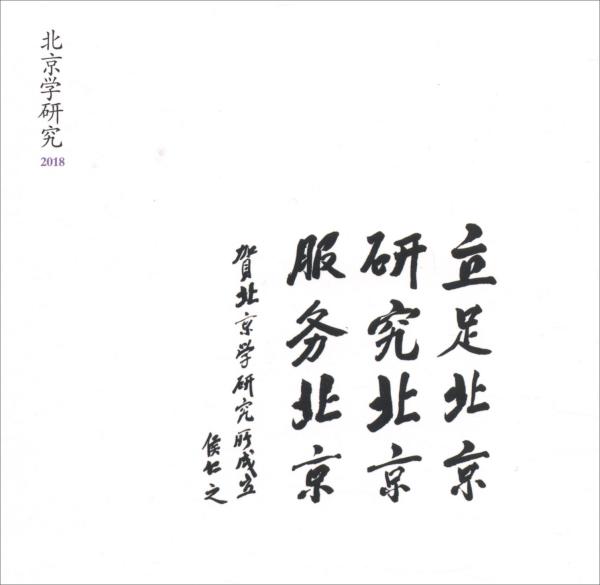 北京学研究
2018
立足北京
研究北京
服务北京
賀北京学研究所成立
侯仁之